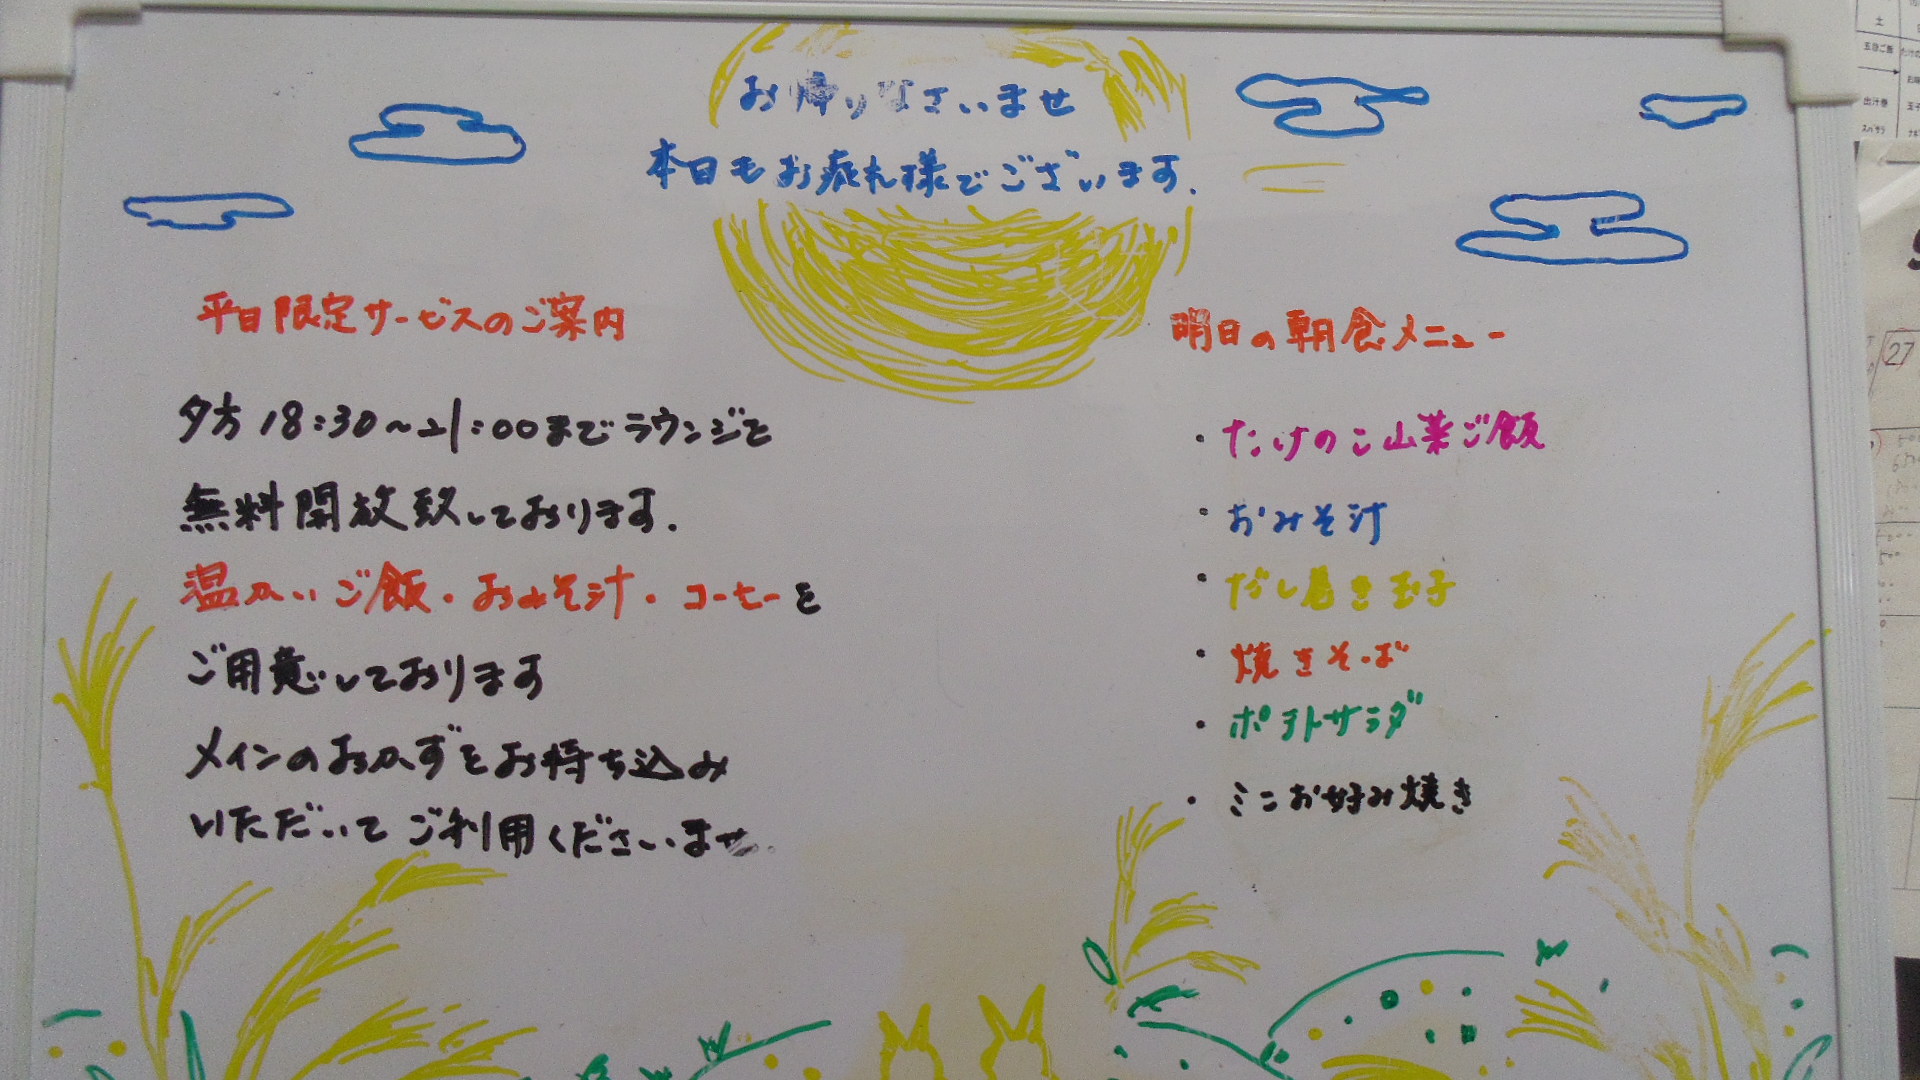 お帰りなさいませ
本日もお疲れ様でございます.
平日限定サービスのご案内
夕方 18:30~21:00までラウンジを
無料開放致しております.
温かいご飯・おみそ汁・コーヒーを
ご用意しております
メインのおかずをお持ち込み
いただいてご利用くださいませ.
明日の朝食メニュー
・たけのこ山菜ご飯
・おみそ汁
・だし巻き玉子
・焼きそば
・ポテトサラダ
・ミニお好み焼き
土
玉子ご飯
出汁巻
スパサラ
27